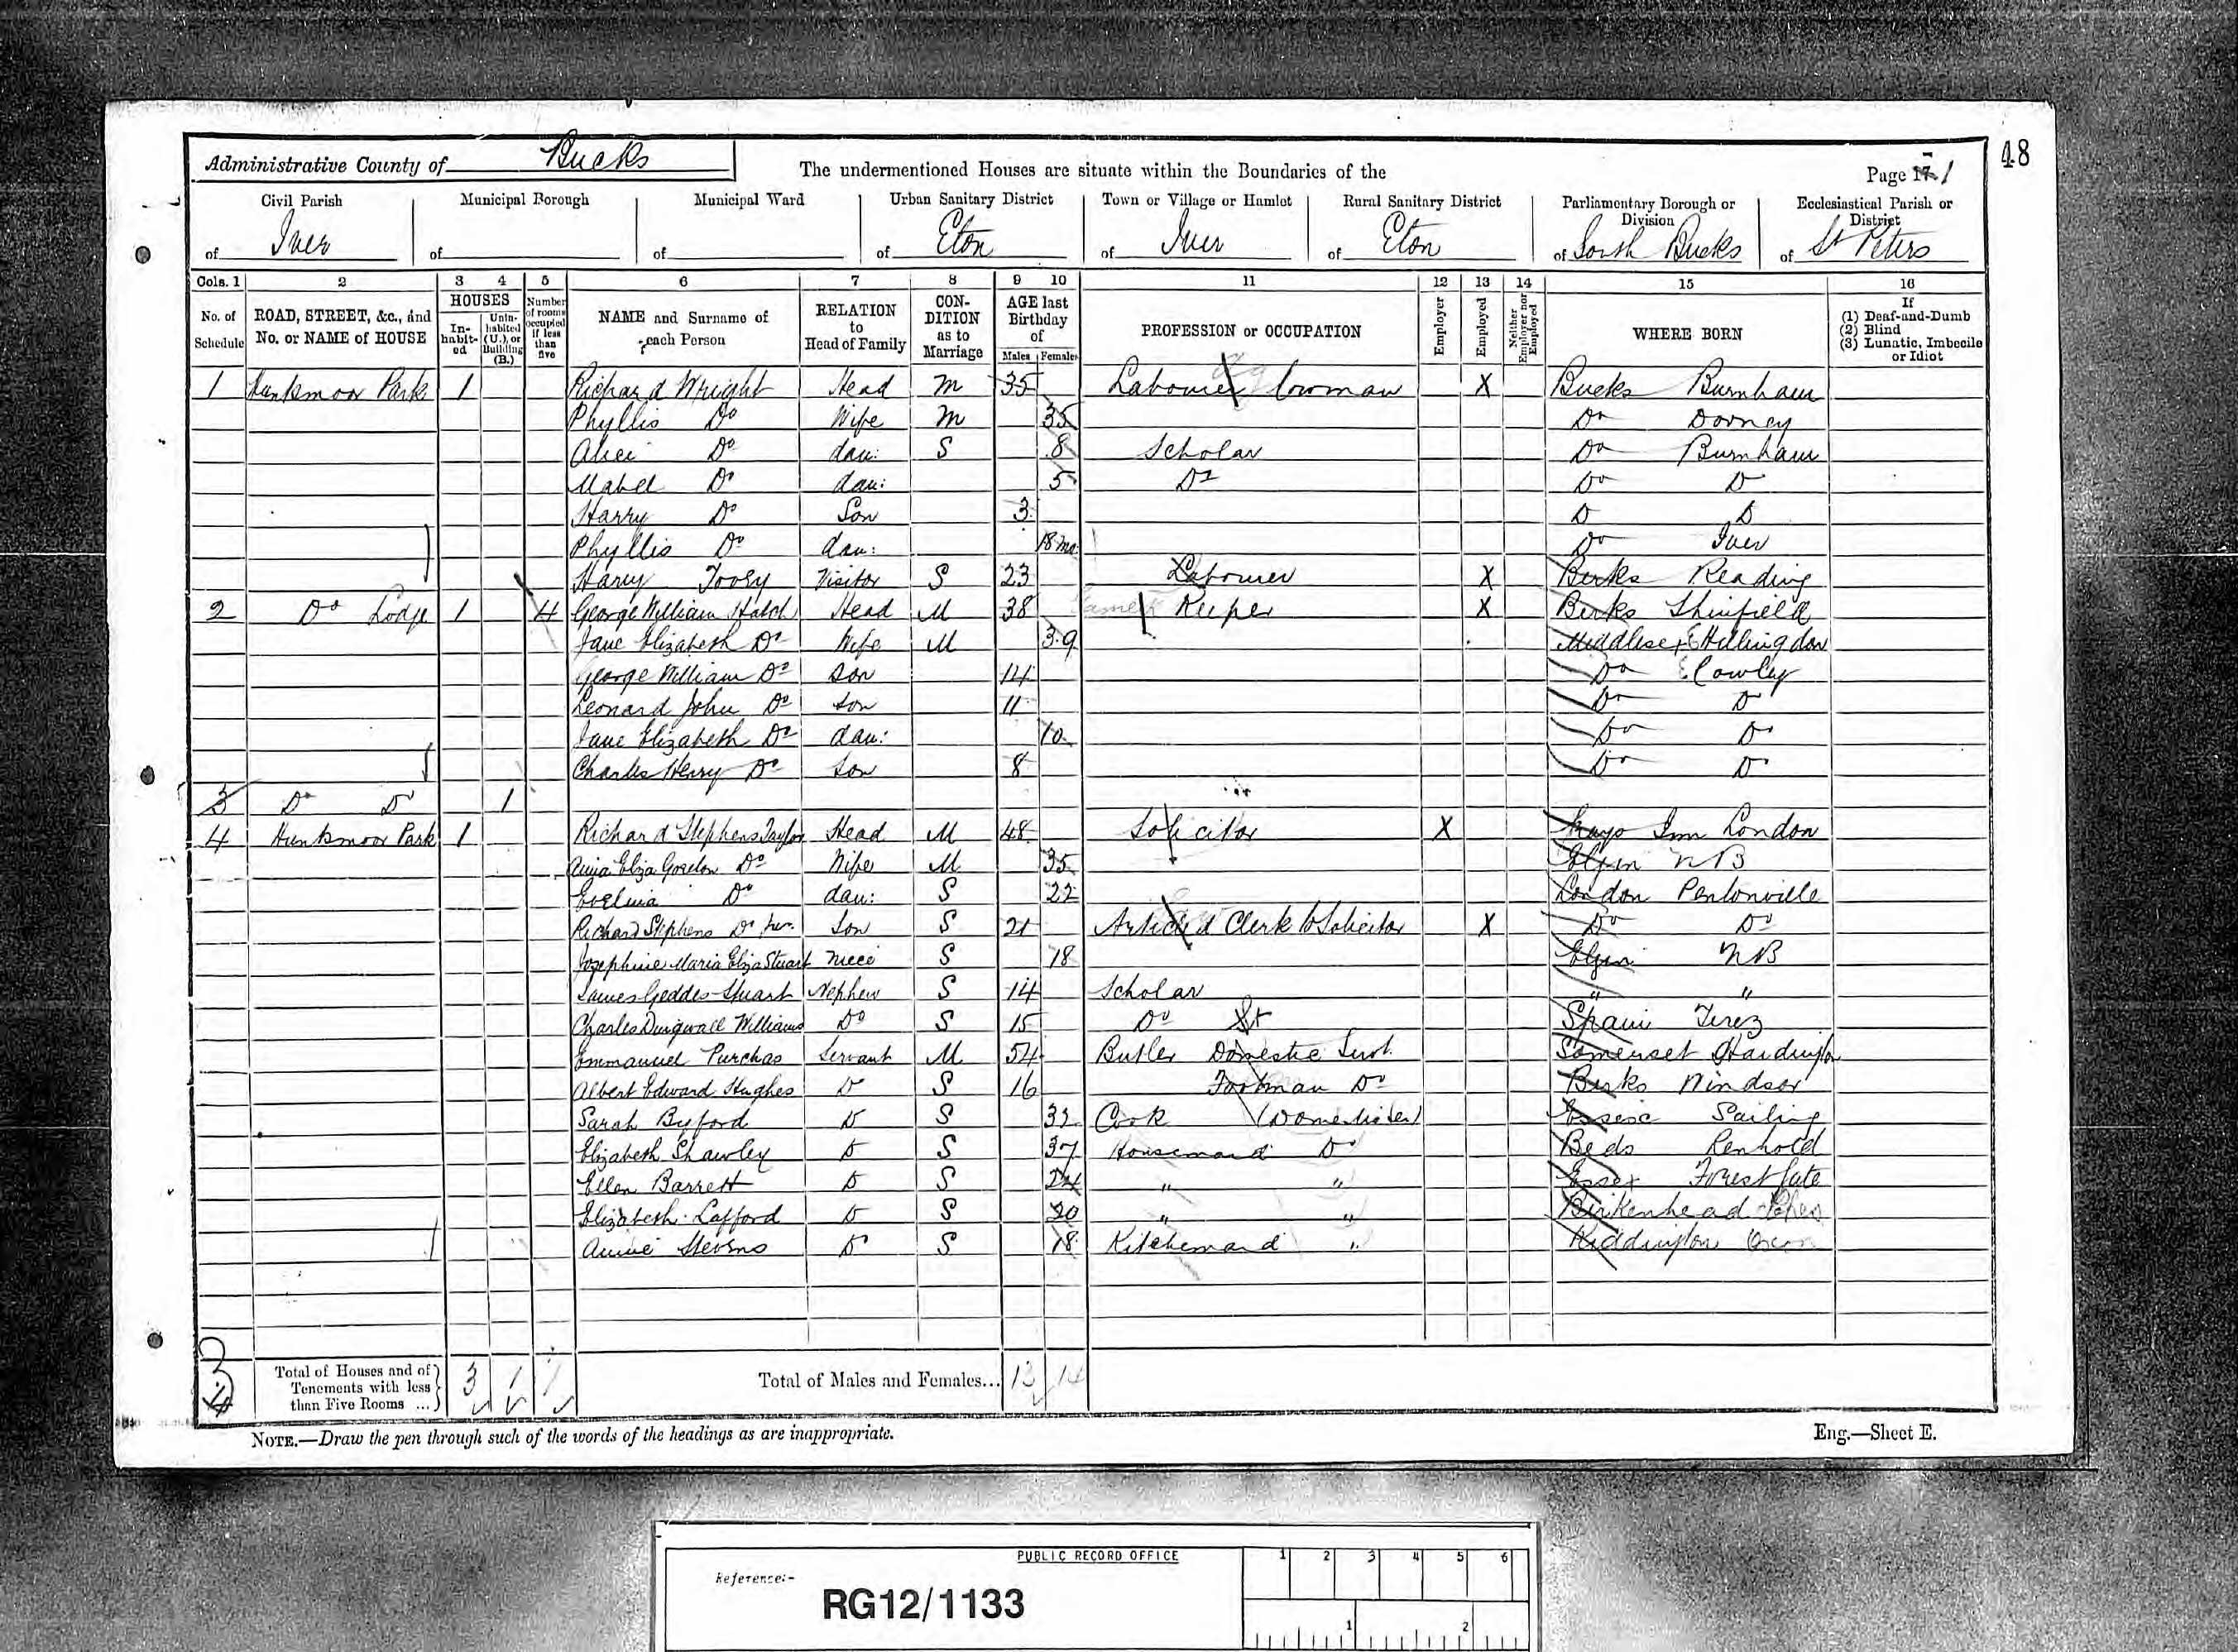 48
Administrative County of Bucks The undermentioned Houses are situate within the Boundaries of the Page 1
Civil Parish Municipal Borough Municipal Ward Urban Sanitary District Town or Village or Hamlet Rural Sanitary District Parliamentary Borough or Division Ecclesiastical Parish or District
of Iver of of of Eton of Iver of Eton of South Bucks of St Peters
Cols. 1 2 3 4 5 6 7 8 9 10 11 12 13 14 15 16
No. of Schedule ROAD, STREET, &c., and No. or NAME of HOUSE HOUSES In-habit-ed Unin-habited (U.), or Building (B.) Number of rooms occupied if less than five NAME and Surname of each Person RELATION to Head of Family CON-DITION as to Marriage AGE last Birthday of Males Females PROFESSION or OCCUPATION Employer Employed Neither Employer nor Employed WHERE BORN If (1) Deaf-and-Dumb (2) Blind (3) Lunatic, Imbecile or Idiot
1 Huntsmoor Park 1 Richard Wright Head M 35 Labourer Cowman X Bucks Burnham
Phyllis Do Wife M 35 Do Dorney
Alice Do dau: S 8 Scholar Do Burnham
Mabel Do dau: 5 Do Do D
Harry Do Son 3 D D
Phyllis Do dau: 18 mo Do Iver
Harry Tovey Visitor S 23 Labourer X Berks Reading
2 Do Lodge 1 4 George William Hatch Head M 38 Game Keeper X Berks Shinfield
Jane Elizabeth Do Wife M 39 Middlesex Hillingdon
George William Do Son 14 Do Cowley
Leonard John Do Son 11 Do D
Jane Elizabeth Do dau: 10 Do Do
Charles Henry Do Son 8 Do D
3 Do Do 1
4 Huntsmoor Park 1 Richard Stephens Taylor Head M 48 Solicitor X Grays Inn London
Annie Eliza Gordon Do Wife M 35 Elgin NB
Evelina Do dau: S 22 London Pentonville
Richard Stephens Do Jun. Son S 21 Articled Clerk to Solicitor X Do Do
Josephine Maria Eliza Stuart Niece S 18 Elgin NB
James Geddes Stuart Nephew S 14 Scholar " "
Charles Dingwall Williams Do S 15 Do Spain Jerez
Emmanuel Purchas Servant M 54 Butler Domestic Servt. Somerset Hardington
Albert Edward Hughes D S 16 Footman Do Berks Windsor
Sarah Byford D S 32 Cook (Domestic Ser) Essex Sailing
Elizabeth Shawley D S 37 Housemaid Do Beds Renhold
Ellen Barrett D S 24 " " Essex Forest Gate
Elizabeth Lafford D S 20 " " Birkenhead Ches
Annie Stevens D S 18 Kitchenmaid " Kiddington Oxon
Total of Houses and of Tenements with less than Five Rooms ... 3 1 1 Total of Males and Females... 13 14
NOTE.—Draw the pen through such of the words of the headings as are inappropriate. Eng.—Sheet E.
PUBLIC RECORD OFFICE 1 2 3 4 5 6
Reference:-
RG12/1133
1 2